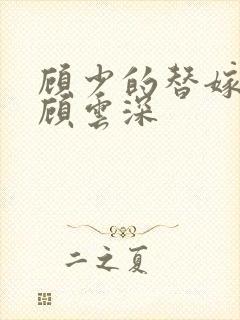 顾少的替嫁
顾云深
二之夏